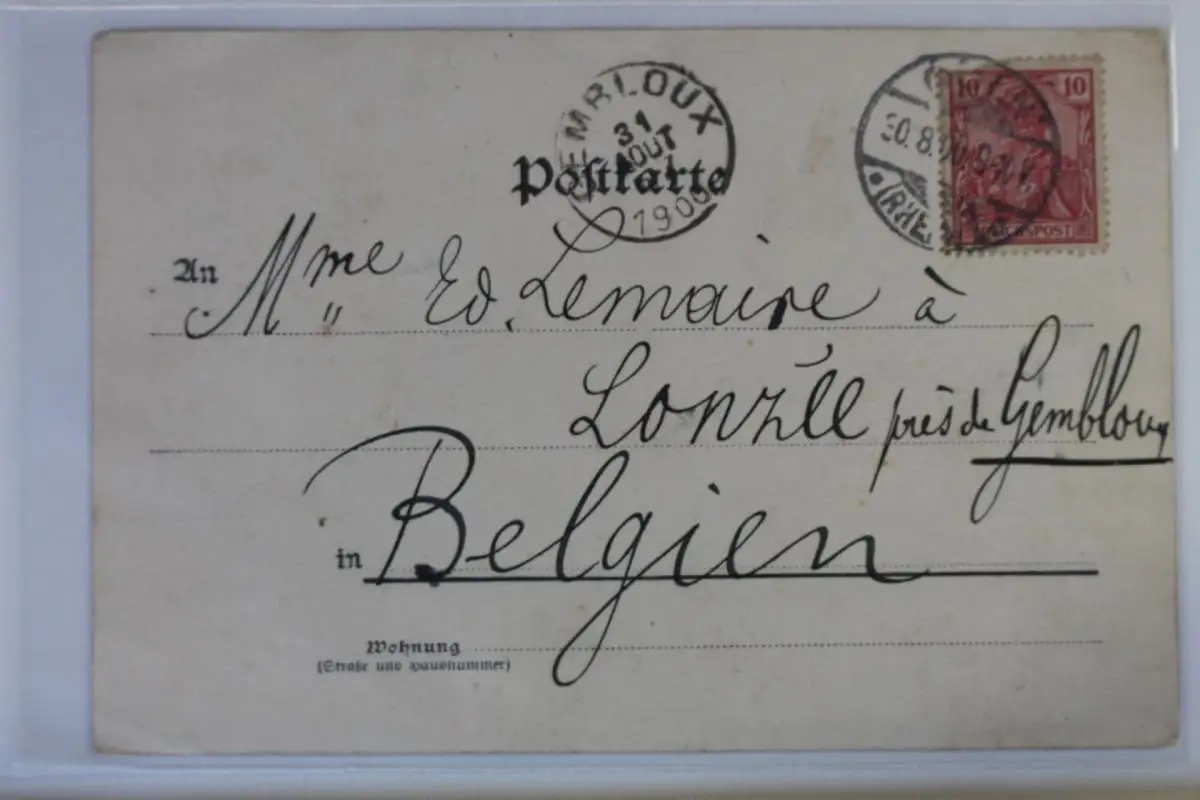 GEMBLOUX
31
AOUT
1900
10 10
30.8.00
REICHSPOST
Postkarte
An Mme Ed. Lemaire à
Lonzée près de Gembloux
in Belgien
Wohnung
(Straße und Hausnummer)